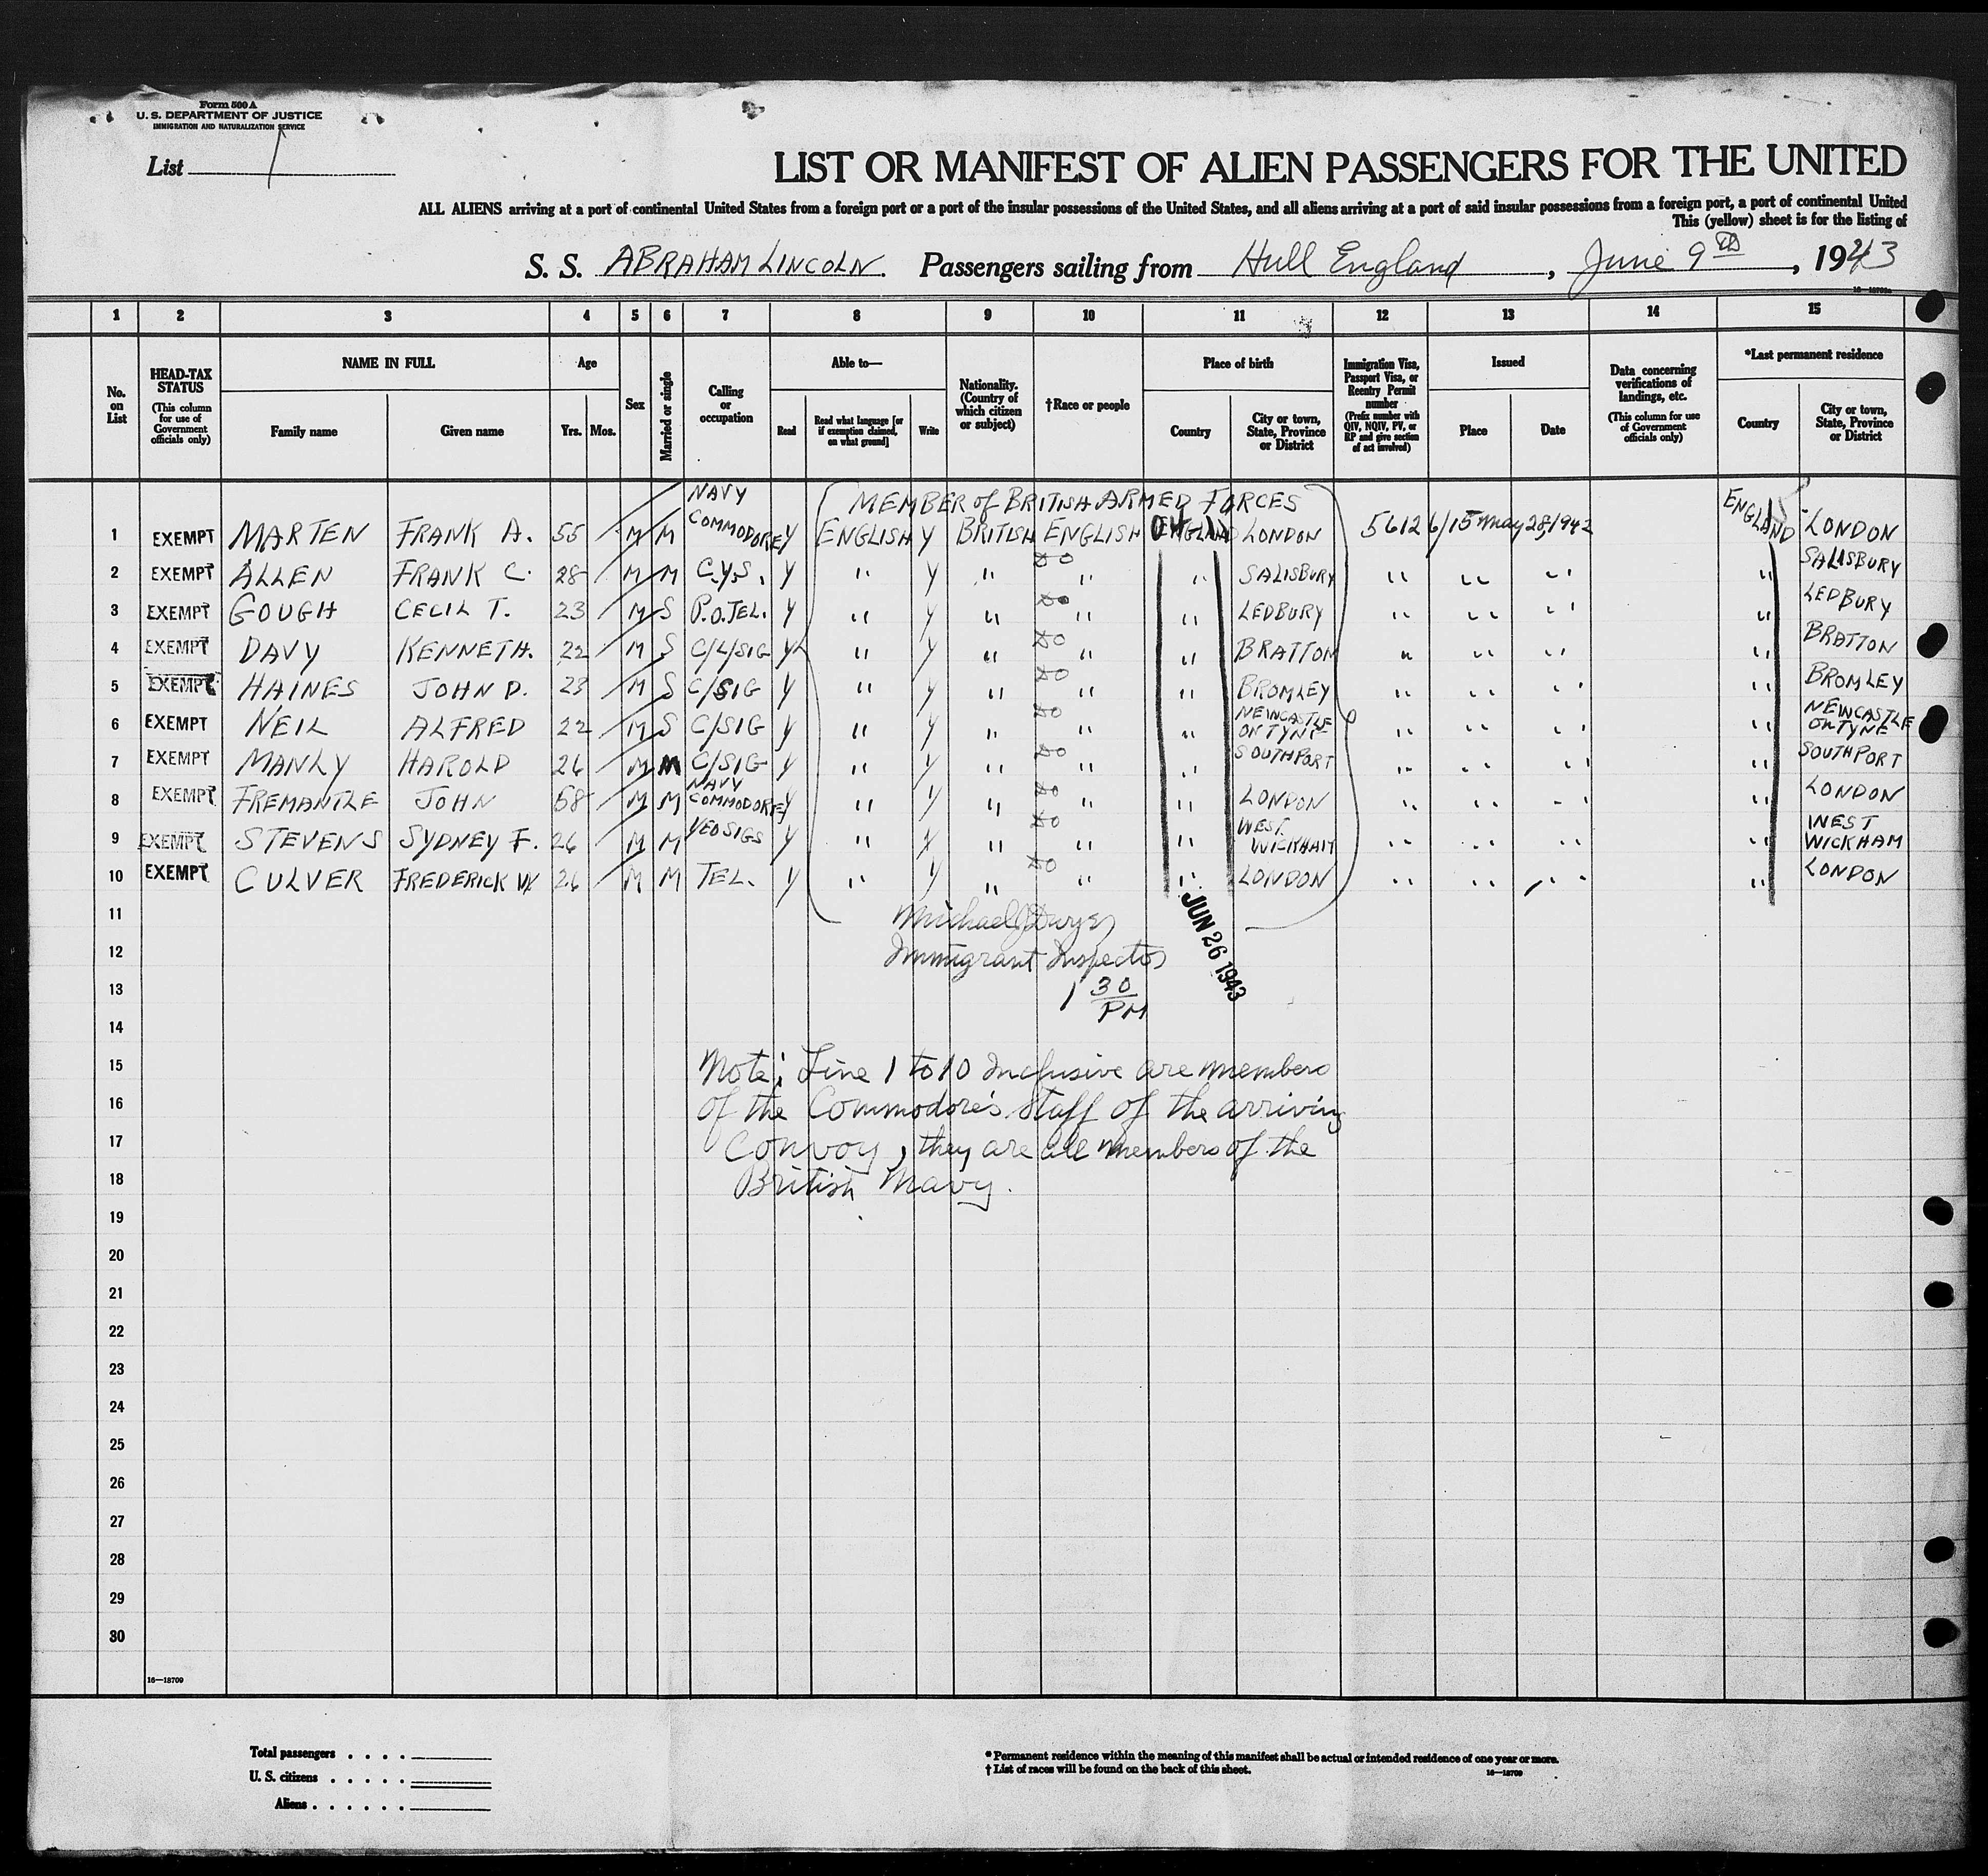 Form 500 A
U. S. DEPARTMENT OF JUSTICE
IMMIGRATION AND NATURALIZATION SERVICE
List 1
LIST OR MANIFEST OF ALIEN PASSENGERS FOR THE UNITED
ALL ALIENS arriving at a port of continental United States from a foreign port or a port of the insular possessions of the United States, and all aliens arriving at a port of said insular possessions from a foreign port, a port of continental United
This (yellow) sheet is for the listing of
S. S. ABRAHAM LINCOLN. Passengers sailing from Hull England, June 9th, 1943
1 2 3 4 5 6 7 8 9 10 11 12 13 14 15
No. on List
HEAD-TAX STATUS (This column for use of Government officials only)
NAME IN FULL
Family name
Given name
Age
Yrs. Mos.
Sex
Married or single
Calling or occupation
Able to—
Read
Read what language [or if exemption claimed, on what ground]
Write
Nationality. (Country of which citizen or subject)
†Race or people
Place of birth
Country
City or town, State, Province or District
Immigration Visa, Passport Visa, or Reentry Permit number (Prefix number with QIV, NQIV, PV, or RP and give section of act involved)
Issued
Place
Date
Data concerning verifications of landings, etc. (This column for use of Government officials only)
*Last permanent residence
Country
City or town, State, Province or District
MEMBER of BRITISH ARMED FORCES
1 EXEMPT MARTEN FRANK A. 55 M M NAVY COMMODORE Y ENGLISH Y BRITISH ENGLISH ENGLAND LONDON 56126/15 May 28, 1942 ENGLAND LONDON
2 EXEMPT ALLEN FRANK C. 28 M M C.Y.S. Y " Y " do " " SALISBURY " " " " SALISBURY
3 EXEMPT GOUGH CECIL T. 23 M S P.O.TEL. Y " Y " do " " LEDBURY " " " " LEDBURY
4 EXEMPT DAVY KENNETH. 22 M S C/L/SIG Y " Y " do " " BRATTON " " " " BRATTON
5 EXEMPT HAINES JOHN D. 23 M S C/SIG Y " Y " do " " BROMLEY " " " " BROMLEY
6 EXEMPT NEIL ALFRED 22 M S C/SIG Y " Y " do " " NEWCASTLE ON TYNE " " " " NEWCASTLE ON TYNE
7 EXEMPT MANLY HAROLD 26 M M C/SIG Y " Y " do " " SOUTHPORT " " " " SOUTHPORT
8 EXEMPT FREMANTLE JOHN 68 M M NAVY COMMODORE Y " Y " do " " LONDON " " " " LONDON
9 EXEMPT STEVENS SYDNEY F. 26 M M YEO SIGS Y " Y " do " " WEST WICKHAM " " " " WEST WICKHAM
10 EXEMPT CULVER FREDERICK W 26 M M TEL. Y " Y " do " " LONDON " " " " LONDON
11 Michael J Dwyer
12 Immigrant Inspector
JUN 26 1943
13 1 30 PM
14
15 Note: Line 1 to 10 Inclusive are members
16 of the Commodore's staff of the arriving
17 Convoy, they are all members of the
18 British Navy.
19
20
21
22
23
24
25
26
27
28
29
30
16—18709
Total passengers . . . .
U. S. citizens . . . . .
Aliens . . . . . .
* Permanent residence within the meaning of this manifest shall be actual or intended residence of one year or more.
† List of races will be found on the back of this sheet.
16—18709